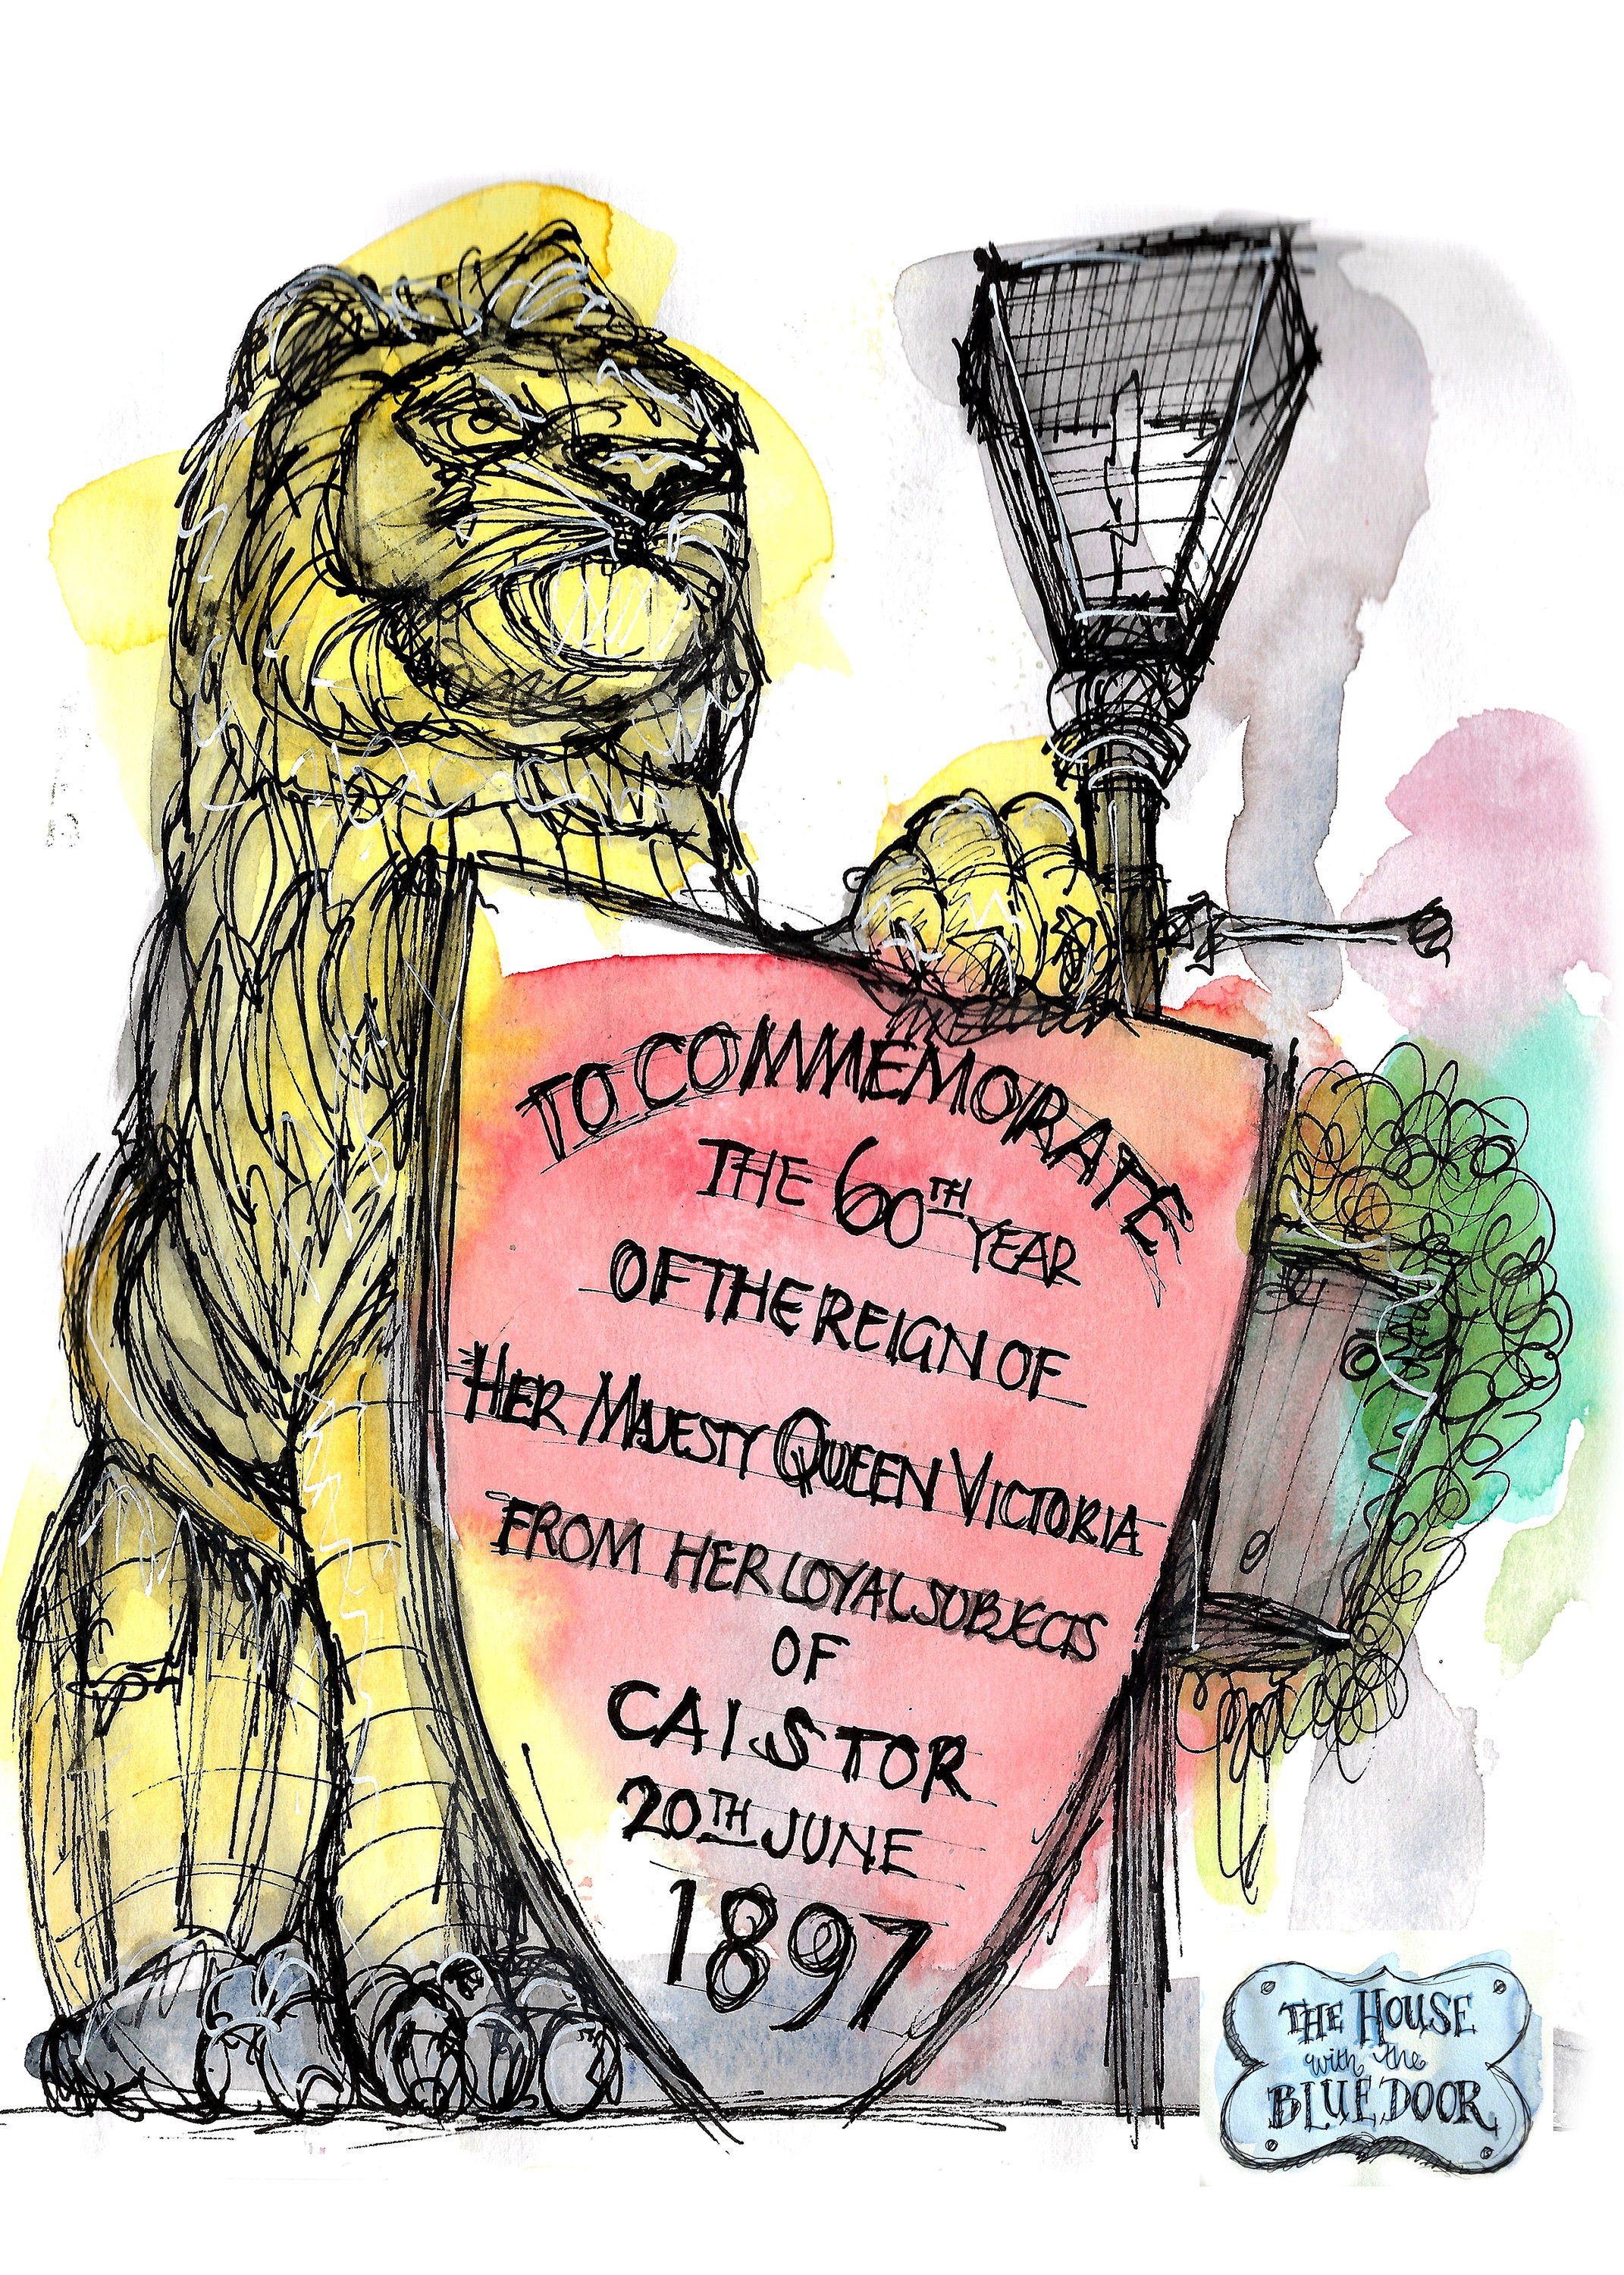 TO COMMEMORATE
THE 60TH YEAR
OF THE REIGN OF
HER MAJESTY QUEEN VICTORIA
FROM HER LOYAL SUBJECTS
OF
CAISTOR
20TH JUNE
1897
THE HOUSE
with the
BLUE DOOR